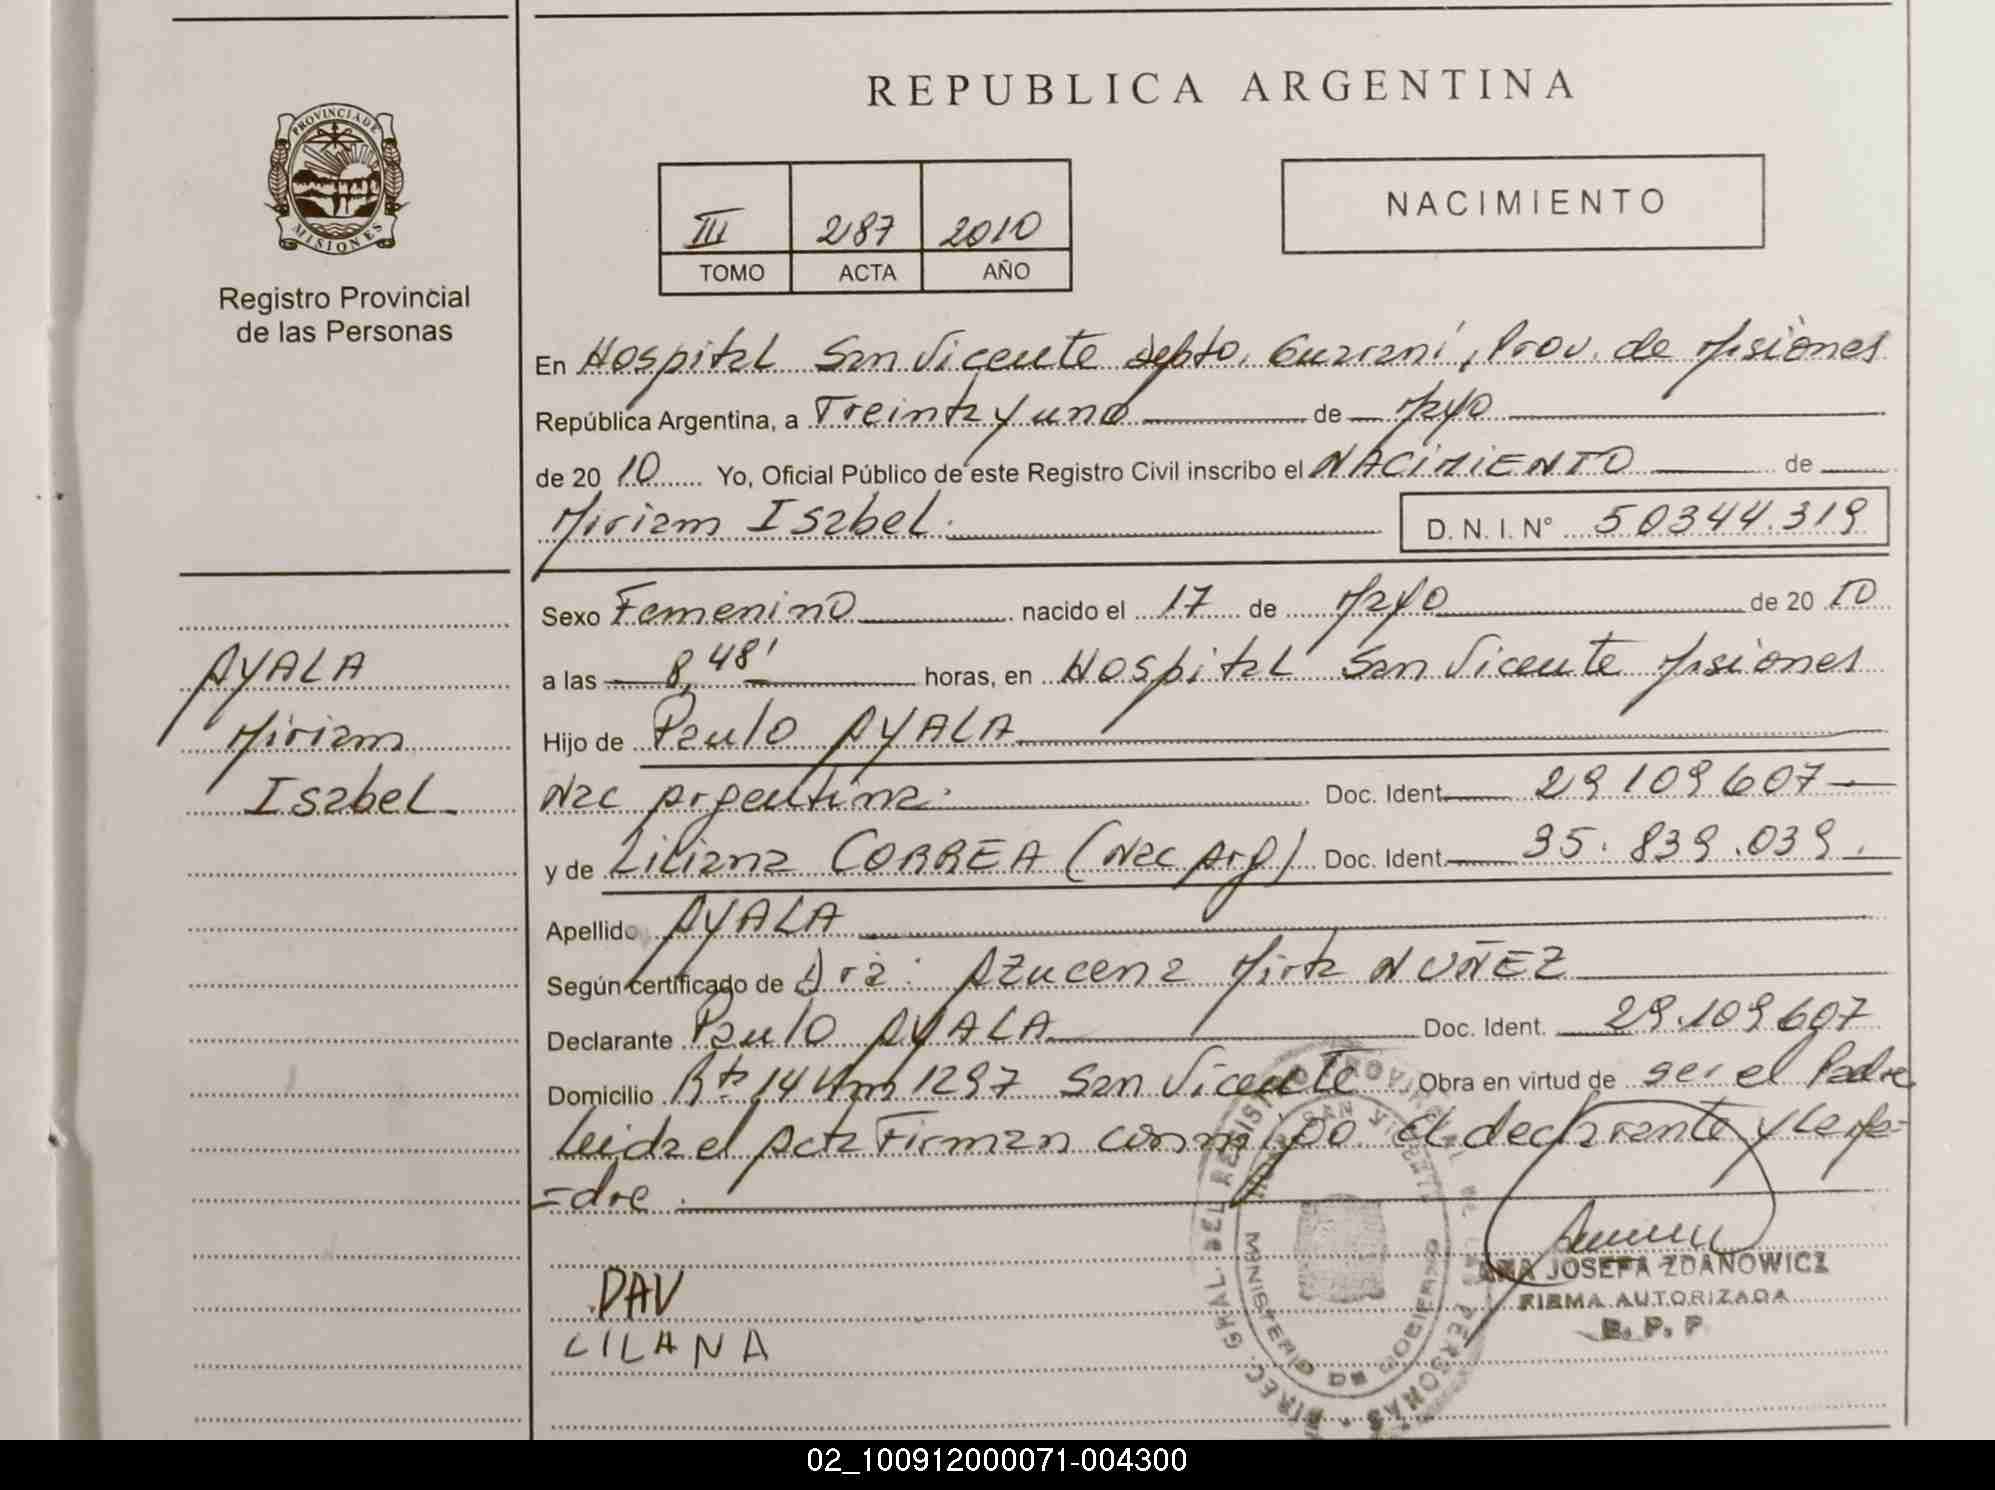 REPUBLICA ARGENTINA
PROVINCIA DE
MISIONES
Registro Provincial
de las Personas
III 287 2010
TOMO ACTA AÑO
NACIMIENTO
En Hospital San Vicente depto. Guaraní, Prov. de Misiones
República Argentina, a Treinta y uno de Mayo
de 20 10 Yo, Oficial Público de este Registro Civil inscribo el NACIMIENTO de
Miriam Isabel. D. N. I. N° 50344.319
Sexo Femenino nacido el 17 de Mayo de 20 10
AYALA
Miriam
Isabel
a las 8,48' horas, en Hospital San Vicente Misiones
Hijo de Paulo AYALA
Nac Argentina. Doc. Ident. 29109607
y de Liliana CORREA (Nac Arg) Doc. Ident. 35.839.039.
Apellido AYALA
Según certificado de Dra: Azucena Mirta NUÑEZ
Declarante Paulo AYALA Doc. Ident. 29.109607
Domicilio Rta 14 Km 1297 San Vicente Obra en virtud de ser el Padre
Leida el Acta Firman conmigo el declarante y la Ma=
=dre.
PAU
LILANA
DIREC. GRAL. DEL REGISTRO DE LAS PERSONAS
MINISTERIO DE GOBIERNO
ANA JOSEFA ZDANOWICZ
FIRMA AUTORIZADA
R. P. P.
02_100912000071-004300